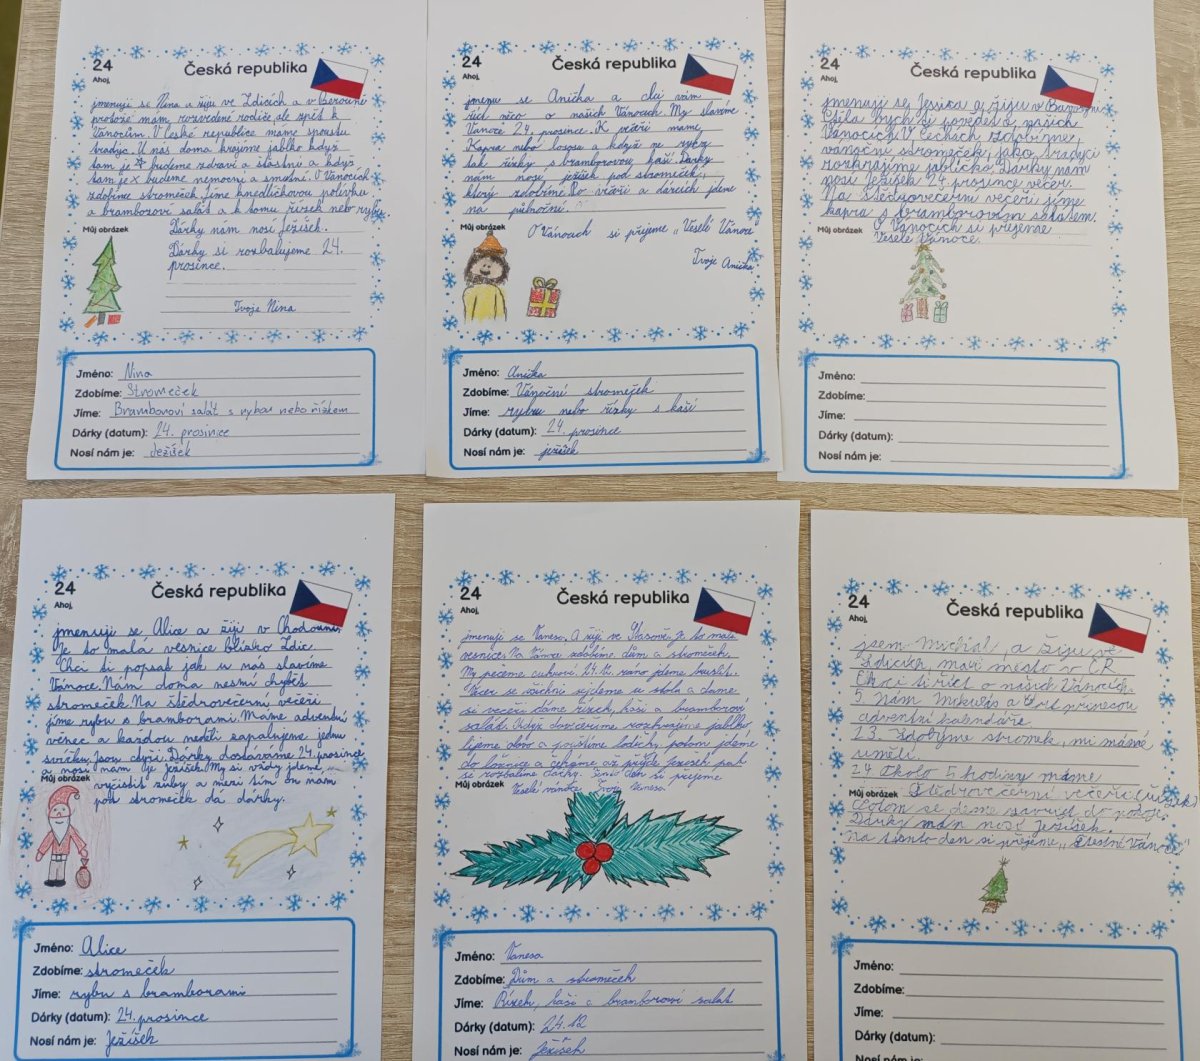 24
Česká republika
Ahoj,
jmenuji se Nina a žiju ve Zdicích a v Berouně
protože mám rozvedené rodiče, ale zpět k
Vánocům. V České republice máme spoustu
tradic. U nás doma krájíme jablko když
tam je * budeme zdraví a šťastní a když
tam je x budeme nemocní a smutní. O Vánocích
zdobíme stromeček. Jíme knedlíčkovou polívku
a bramborový salát a k tomu řízek nebo rybu
Můj obrázek
Dárky nám nosí Ježíšek.
Dárky si rozbalujeme 24.
prosince.
Tvoje Nina
Jméno: Nina
Zdobíme: Stromeček
Jíme: Bramborový salát s rybou nebo řízkem
Dárky (datum): 24. prosinice
Nosí nám je: Ježíšek
24
Česká republika
Ahoj,
jmenu se Anička a chci vám
říct něco o našich Vánocích. My slavíme
Vánoce 24. prosince. K večeři máme
Kapra nebo lososa a když ne ryby
tak řízky s bramborovou kaší. Dárky
nám nosí ježíšek pod stromeček,
který zdobíme. Po večeři a dárcích jdeme
na půlnoční.
Můj obrázek
O Vánocích si přejeme „Veselé Vánoce“
Tvoje Anička
Jméno: Anička
Zdobíme: Vánoční stromeček
Jíme: rybu nebo řízky s kaší
Dárky (datum): 24. prosince
Nosí nám je: ježíšek
24
Česká republika
Ahoj,
jmenuji se Jesica a žiju v
Chtěla bych ti povědět o našich
Vánocích. V Čechách zdobíme
vánoční stromeček, jako tradici
rozkrájíme jablíčko. Dárky nám
nosí Ježíšek 24. prosince večer.
Na štědrovečerní večeři jíme
kapra s bramborovím salátem.
Můj obrázek
O Vánocích si přejeme
Veselé Vánoce.
Jméno:
Zdobíme:
Jíme:
Dárky (datum):
Nosí nám je:
24
Česká republika
Ahoj,
jmenuji se Alice a žiji v Chodouni.
Je to malá vesnice blízko Zdic.
Chci ti popsat jak u nás slavíme
Vánoce. Nám doma nesmí chybět
stromeček. Na štědrovečerní večeři
jíme rybu s bramborami. Máme adventní
věnec a každou neděli zapalujeme jednu
svíčku. Jsou čtyři. Dárky dostáváme 24. prosince
a nosí nám je Ježíšek. My si vždy jdeme
Můj obrázek
vyčistit zuby a mezi tím on nám
pod stromeček dá dárky.
Jméno: Alice
Zdobíme: stromeček
Jíme: rybu s bramborami
Dárky (datum): 24. prosince
Nosí nám je: Ježíšek
24
Česká republika
Ahoj,
jmenuji se Vanesa. A žiji ve Stašově. Je to malá
vesnice. Na Vánoce zdobíme dům a stromeček.
My pečeme cukroví. 24.12. ráno jdeme bruslit.
Večer se všichni sejdeme u stolu a dáme
si večeři dáme řízek, kaši a bramborový
salát. Když dovečeříme rozkrájíme jablko
lijeme olovo a pustíme lodičky, potom jdeme
do ložnice a čekáme až přijde Ježíšek pak
se rozbalíme dárky. Tento den si přejeme
Můj obrázek
Veselé vánoce. Tvoje Vanesa!
Jméno: Vanesa
Zdobíme: Dům a stromeček
Jíme: Řízek, kaši a bramborový salát
Dárky (datum): 24.12
Nosí nám je: Ježíšek
24
Česká republika
Ahoj,
jsem Michal, a žiju ve
Zdicích, maví město v ČR
Chci ti říct o našich Vánocích.
5. Nám Mikuláš a čert přinesou
adventní kalendáře.
23. Zdobýme stromek, mi máme
umělí.
24. Okolo 5 hodiny máme
Můj obrázek
Štědrovečerní večeři (řízek)
Potom se deme zavřít do pokoje.
Dárky nám nosí Ježíšek.
Na tento den si přejeme „Štastné Vánoce“
Jméno:
Zdobíme:
Jíme:
Dárky (datum):
Nosí nám je: